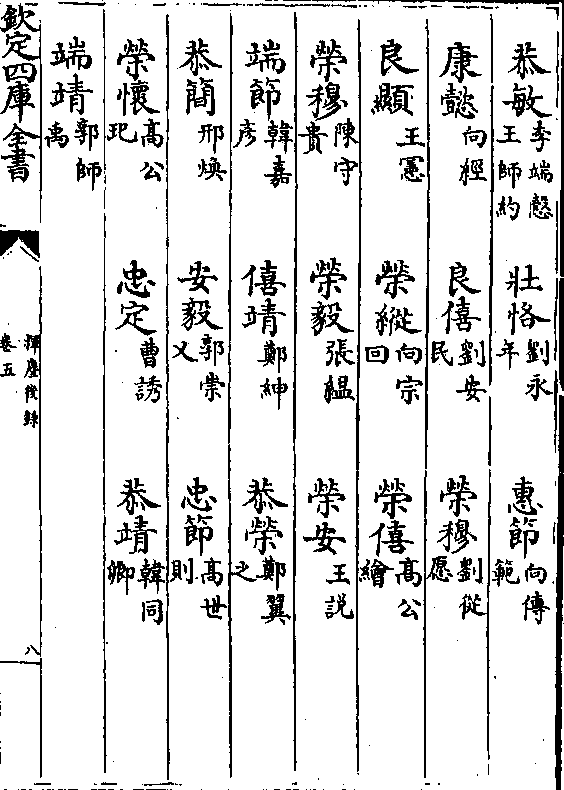 恭敏李端慤王師約 壯恪劉永年 惠節向傳範
康懿向經 良僖劉安民 榮穆劉從愿
良顯王憲 榮縱向宗回 榮僖高公繪
榮穆陳守貴 榮毅張緼 榮安王説
端節韓嘉彦 僖靖鄭紳 恭榮鄭翼之
恭簡邢焕 安毅郭崇义 忠節高世則
榮懷高公𤣱 忠定曹誘 恭靖韓同卿
端靖郭師禹
欽定四庫全書
揮麈後録
卷五
八